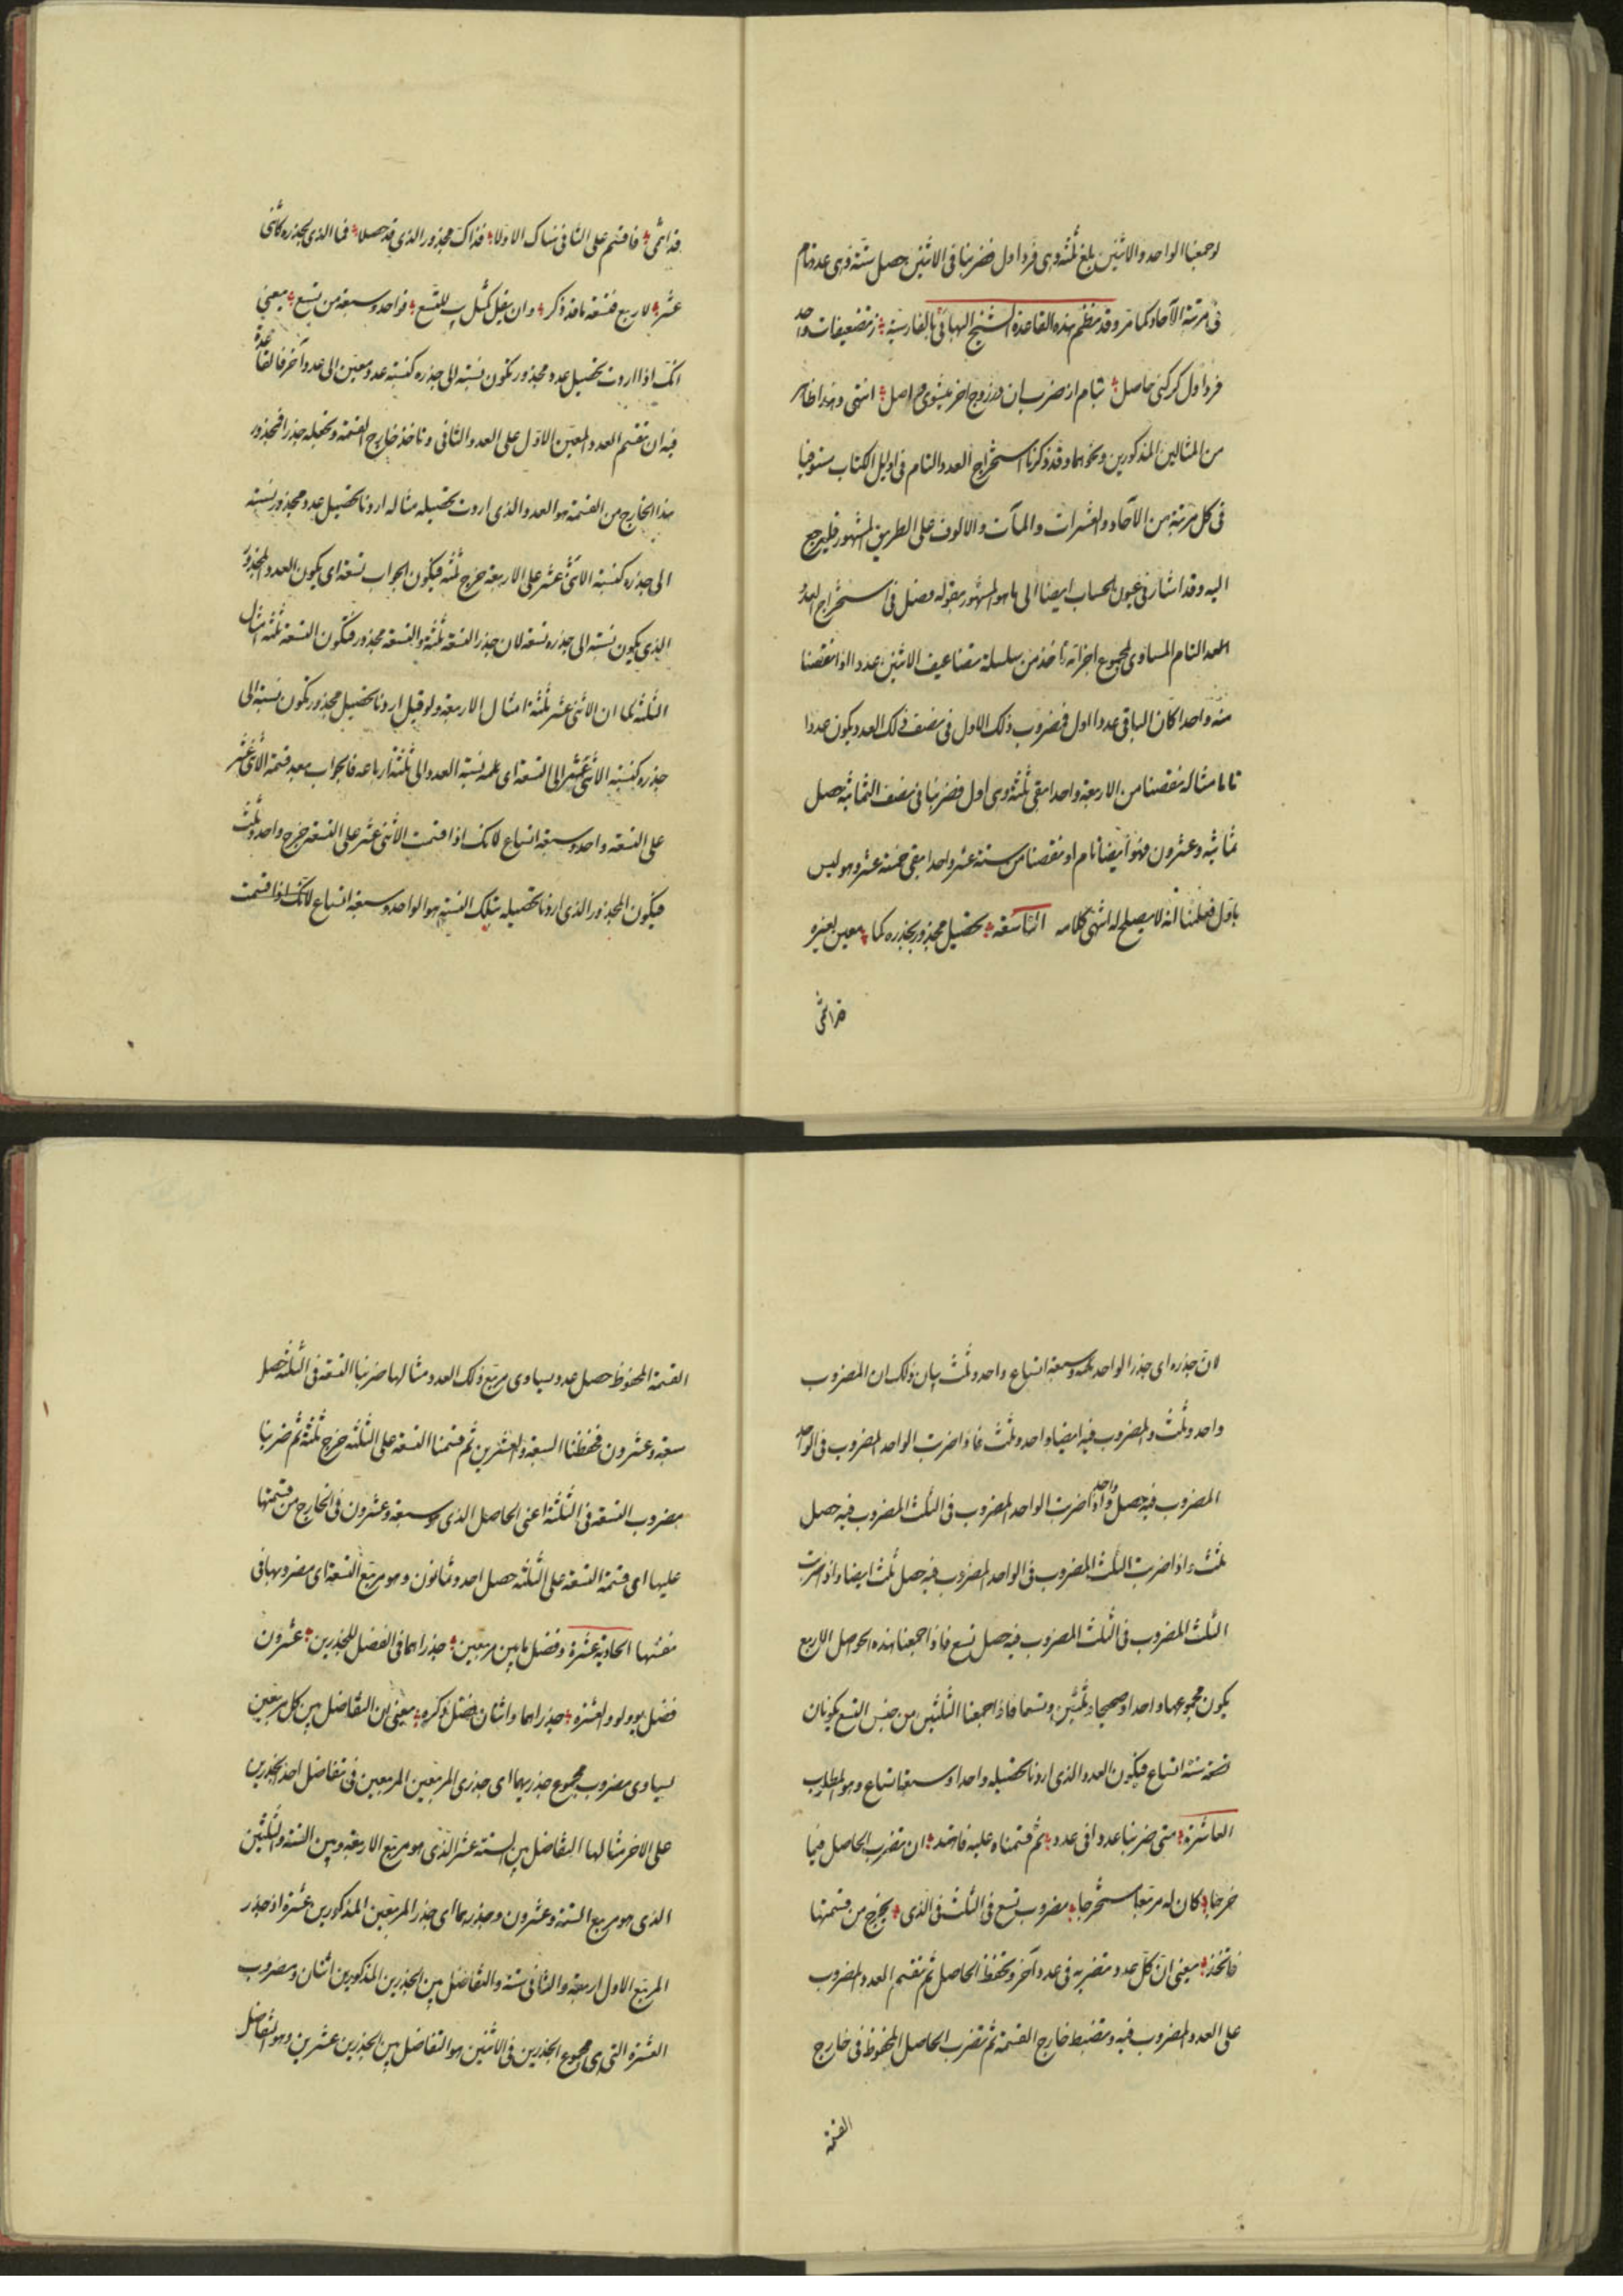 لو جمعنا الواحد والاثنين بلغ ثلثة وهى فرد اول فضربنا فى الاثنين حصل ستة وهى عدد تام
فى مرتبة الآحاد كما مر وقد نظم هذه القاعدة الشيخ البهائى بالفارسية ز تضعيفات واحد
فرد اول كر كنى حاصل تمام از ضرب ان در زوج اخر ميشوى انتهى وهذا ظاهر
من المثالين المذكورين ونحوهما وقد ذكرنا استخراج العدد التام فى اوايل الكتاب مستوفيا
فى كل مرتبة من الآحاد والعشرات والمآت والالوف على الطريق المشهور فليرجع
اليه وقد اشار فى عيون الحساب ايضا الى ما هو المشهور بقوله فصل فى استخراج العدد
العدد التام المساوى لمجموع اجزائه تاخذ من سلسلة تضاعيف الاثنين عددا اذا نقصنا
منه واحدا كان الباقى عددا اول فمضروب ذلك الاول فى نصف ذلك العدد يكون عددا
تاما مثاله نقصنا من الاربعة واحدا بقى ثلثة وهى اول فضربنا فى نصف الثمانية حصل
ثمانية وعشرون فهو ايضا تام او نقصنا من ستة عشر واحدا بقى خمسة عشر وهو ليس
باول فعلمنا انه لا يصلح له انتهى كلامه التاسعة تحصيل مجذور بجذره كما معين لغيره
قد انتمى
قد انتمى فاقسم على الثانى هناك الاولا فذاك مجذور الذى قد حصلا فما الذى بجذره كاثنى
عشر لاربع فتسعة ما قد ذكر وان يقل كمثل يب لتسع فواحد وسبعة من تسع يعنى
انك اذا اردت تحصيل عدد مجذور تكون نسبته الى جذره كنسبة عدد معين الى عدد آخر فالقاعدة
فيه ان تقسم العدد المعين الاول على العدد الثانى وتاخذ خارج القسمة وتجعله جذرا فمجذور
هذا الخارج من القسمة هو العدد الذى اردت تحصيله مثاله اردنا تحصيل عدد مجذور نسبته
الى جذره كنسبة الاثنى عشر على الاربعة خرج ثلثة فيكون الجواب تسعة اى يكون العدد المجذور
الذى يكون نسبته الى جذره تسعة لان جذر التسعة ثلثة والتسعة مجذور فتكون التسعة ثلثة امثال
الثلثة كما ان الاثنى عشر ثلثة امثال الاربعة ولو قيل اردنا تحصيل مجذور تكون نسبته الى
جذره كنسبة الاثنى عشر الى التسعة اى كنسبة العدد الى ثلثة ارباعه فالجواب بعد قسمة الاثنى عشر
على التسعة واحد وسبعة اتساع لانك اذا قسمت الاثنى عشر على التسعة خرج واحد وثلث
فيكون المجذور الذى اردنا تحصيله بتلك النسبة هو الواحد وسبعة اتساع لانك اذا قسمت
لان جذره اى جذر الواحد وسبعة اتساع واحد وثلث بيان ذلك ان المضروب
واحد وثلث والمضروب فيه ايضا واحد وثلث فاذا ضربت الواحد المضروب فى الواحد
المضروب فيه حصل واحد واذا ضربت الواحد المضروب فى الثلث المضروب فيه حصل
ثلث واذا ضربت الثلث المضروب فى الواحد المضروب فيه حصل ثلث ايضا واذا ضربت
الثلث المضروب فى الثلث المضروب فيه حصل تسع فاذا جمعنا هذه الحواصل الاربع
يكون مجموعها واحدا صحيحا وثلثين وتسعا فاذا جمعنا الثلثين من جنس التسع يكونان
ستة اتساع فيكون العدد الذى اردنا تحصيله واحدا وسبعة اتساع وهو المطلوب
العاشرة متى ضربنا عددا فى عدد ثم قسمناه عليه فاقتد ان تضرب الحاصل فيما
خرجا كان له مربعا مستخرجا مضروب تسع فى الثلث فى الذى يخرج من قسمتها
فاتخذ يعنى ان كل عدد تضربه فى عدد آخر وتحفظ الحاصل ثم تقسم العدد المضروب
على العدد المضروب فيه وتضبط خارج القسمة ثم تضرب الحاصل المحفوظ فى خارج
القسمة
القسمة المحفوظ حصل عدد يساوى مربع ذلك العدد مثالها ضربنا التسعة فى الثلثة حصل
سبعة وعشرون فحفظنا السبعة والعشرين ثم قسمنا التسعة على الثلثة خرج ثلثة ثم ضربنا
مضروب التسعة فى الثلثة اعنى الحاصل الذى هو سبعة وعشرون فى الخارج من قسمتها
عليها اى قسمة التسعة على الثلثة حصل احد وثمانون وهو مربع التسعة اى مضروبها فى
نفسها الحادية عشرة وفضل ما بين مربعين جذراهما فى الفضل للجذرين عشرون
فضل يو ولو والعشرة جذراهما واثنان فضل ذكره يعنى ان التفاضل بين كل مربعين
يساوى مضروب مجموع جذريهما اى جذرى المربعين المربعين فى تفاضل احد الجذرين
على الاخر مثالها التفاضل بين الستة عشر الذى هو مربع الاربعة وبين الستة والثلثين
الذى هو مربع الستة وعشرون وجذريهما اى جذر المربعين المذكورين عشرة اذ جذر
المربع الاول اربعة والثانى ستة والتفاضل بين الجذرين المذكورين اثنان ومضروب
العشرة التى هى مجموع الجذرين فى الاثنين هو التفاضل بين الجذرين عشرين وهو التفاضل